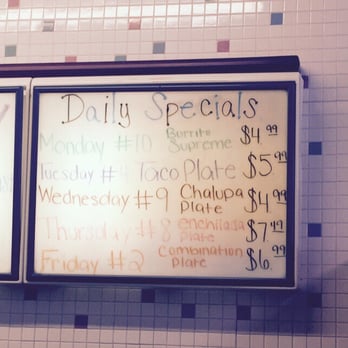 Daily Specials
Monday #10 Burrito Supreme $4.99
Tuesday # Taco Plate $5.99
Wednesday #9 Chalupa Plate $4.99
Thursday #8 enchilada Plate $7.49
Friday #2 Combination Plate $6.99